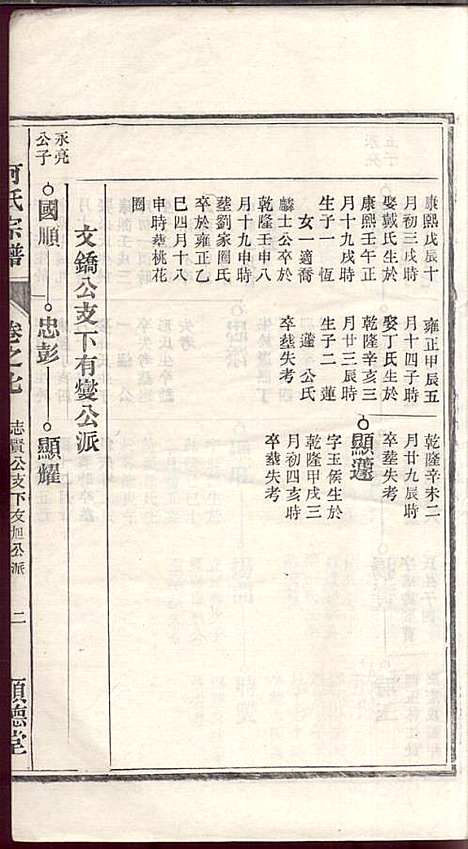 康熙戊辰十
月初三戌時
娶戴氏生於
康熙壬午正
月十九戌時
生子一恆
女一適喬
麟士公卒於
乾隆壬申八
月十九申時
塟劉家圍氏
卒於雍正乙
巳四月十八
申時塟桃花
圈
雍正甲辰五
月十四子時
娶丁氏生於
乾隆辛亥三
月廿三辰時
生子二 蓮
蘧 公氏
卒塟失考
乾隆辛未二
月廿九辰時
卒塟失考
顯蘧
字玉侯生於
乾隆甲戌三
月初四亥時
卒塟失考
文鐈公支下有燮公派
永亮
公子
國順 忠彭 顯耀
何氏宗譜
卷之七
志賢公支下文旭公派
二
順德堂